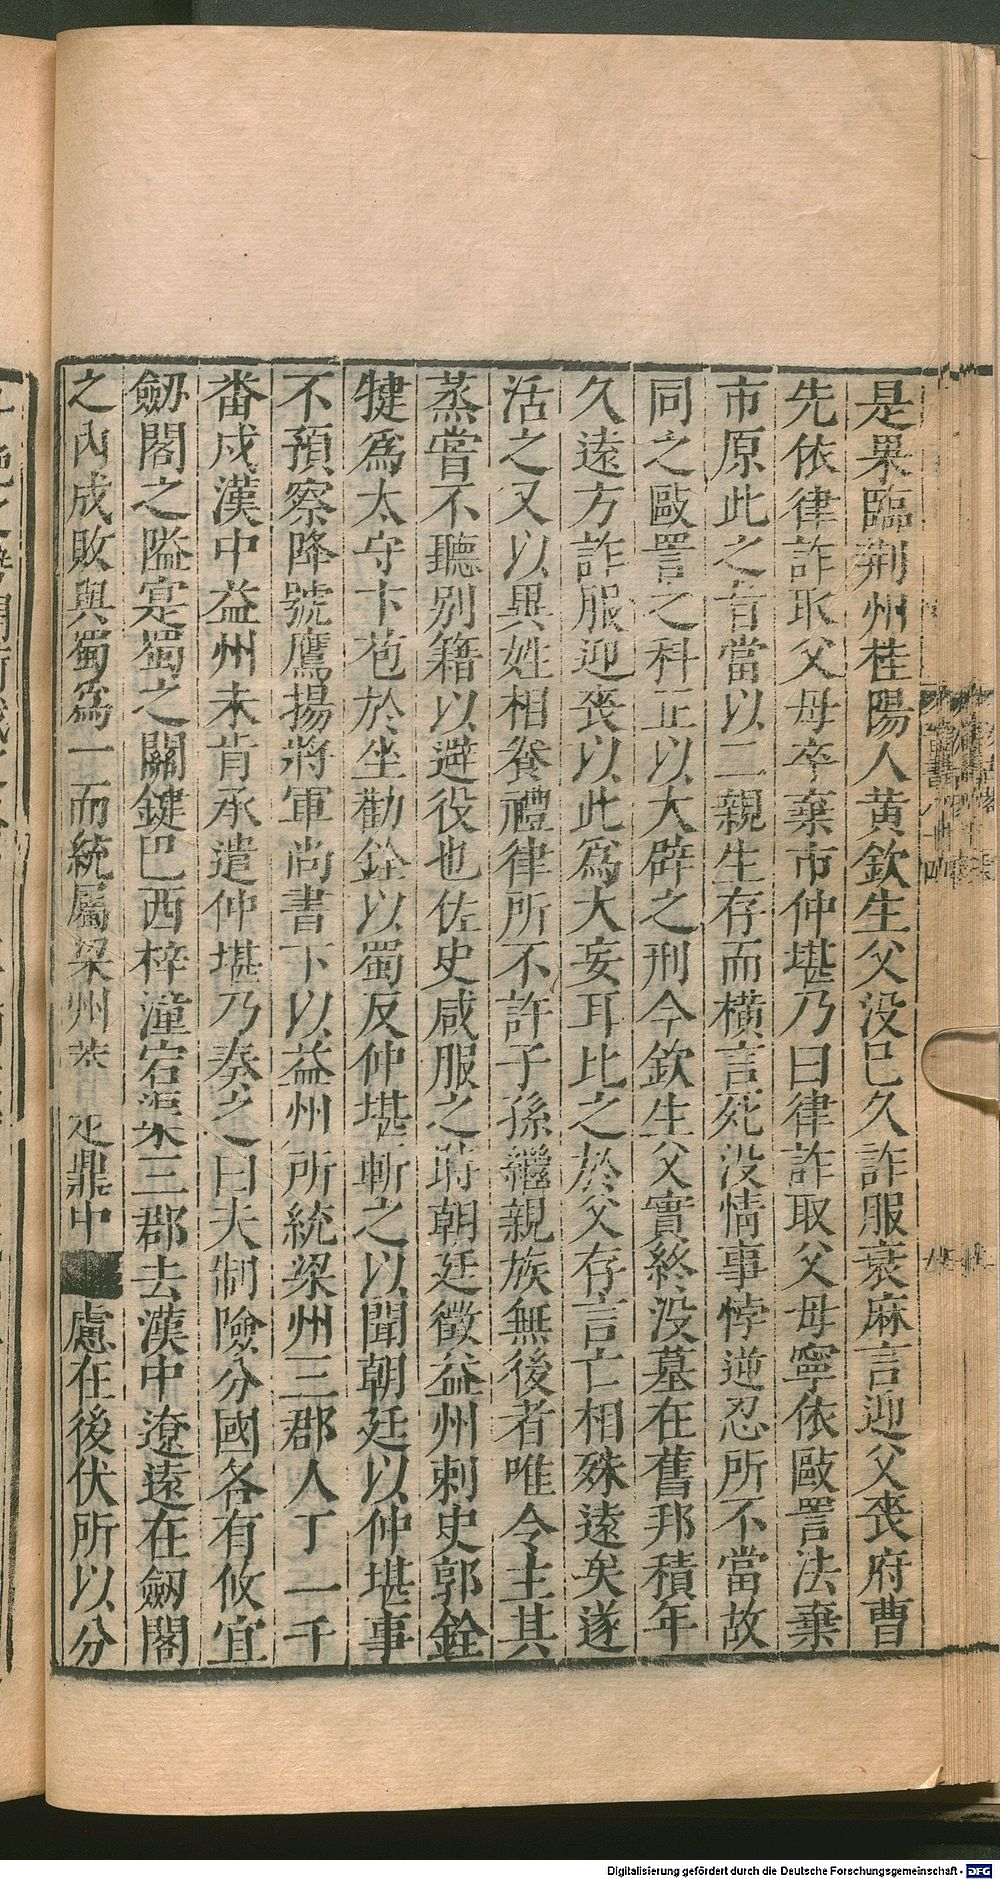 是果臨荆州桂陽人黄欽生父没已久詐服衰麻言迎父喪府曹
先依律詐取父母卒棄市仲堪乃曰律詐取父母寧依歐詈法棄
市原此之旨當以二親生存而横言死没情事悖逆忍所不當故
同之歐詈之科正以大辟之刑今欽生父實終没墓在舊邦積年
久遠方詐服迎喪以此爲大妄耳比之於父存言亡相殊遠矣遂
活之又以異姓相養禮律所不許子孫繼親族無後者唯令主其
蒸嘗不聽别籍以避役也佐史咸服之時朝廷徵益州刺史郭銓
犍爲太守卞苞於坐勸銓以蜀反仲堪斬之以聞朝廷以仲堪事
不預察降號鷹揚將軍尚書下以益州所統梁州三郡人丁一千
畨戍漢中益州未肯承遣仲堪乃奏之曰夫制險分國各有攸宜
劒閣之隘寔蜀之關鍵巴西梓潼宕渠三郡去漢中遼遠在劒閣
之内成敗與蜀爲一而統屬梁州 定鼎中 慮在後伏所以分
Digitalisierung gefördert durch die Deutsche Forschungsgemeinschaft - DFG